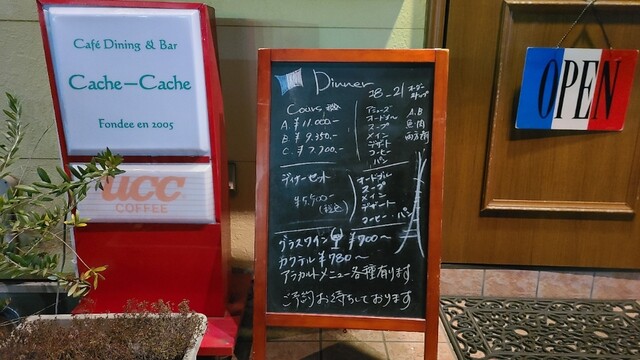 Café Dining & Bar
Cache—Cache
Fondee en 2005
UCC
COFFEE
OPEN
Dinner
18-21
オーダー
ストップ
Cours 税込
A. ¥11.000-
B. ¥9.350-
C. ¥7.700-
アミューズ
オードブル
スープ
メイン
デザート
コーヒー
パン
A.B
魚・肉
両方
ディナーセット
¥5,500-
(税込)
オードブル
スープ
メイン
デザート
コーヒー・パン
グラスワイン ¥700〜
カクテル ¥780〜
アラカルトメニュー各種有ります
ご予約お待ちしております